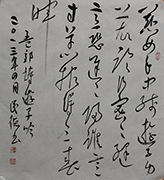 慈母手中线游子身
上衣临行密密缝意
恐迟迟归谁言
寸草心报得三春
晖
孟郊诗游子吟
二〇一三年四月